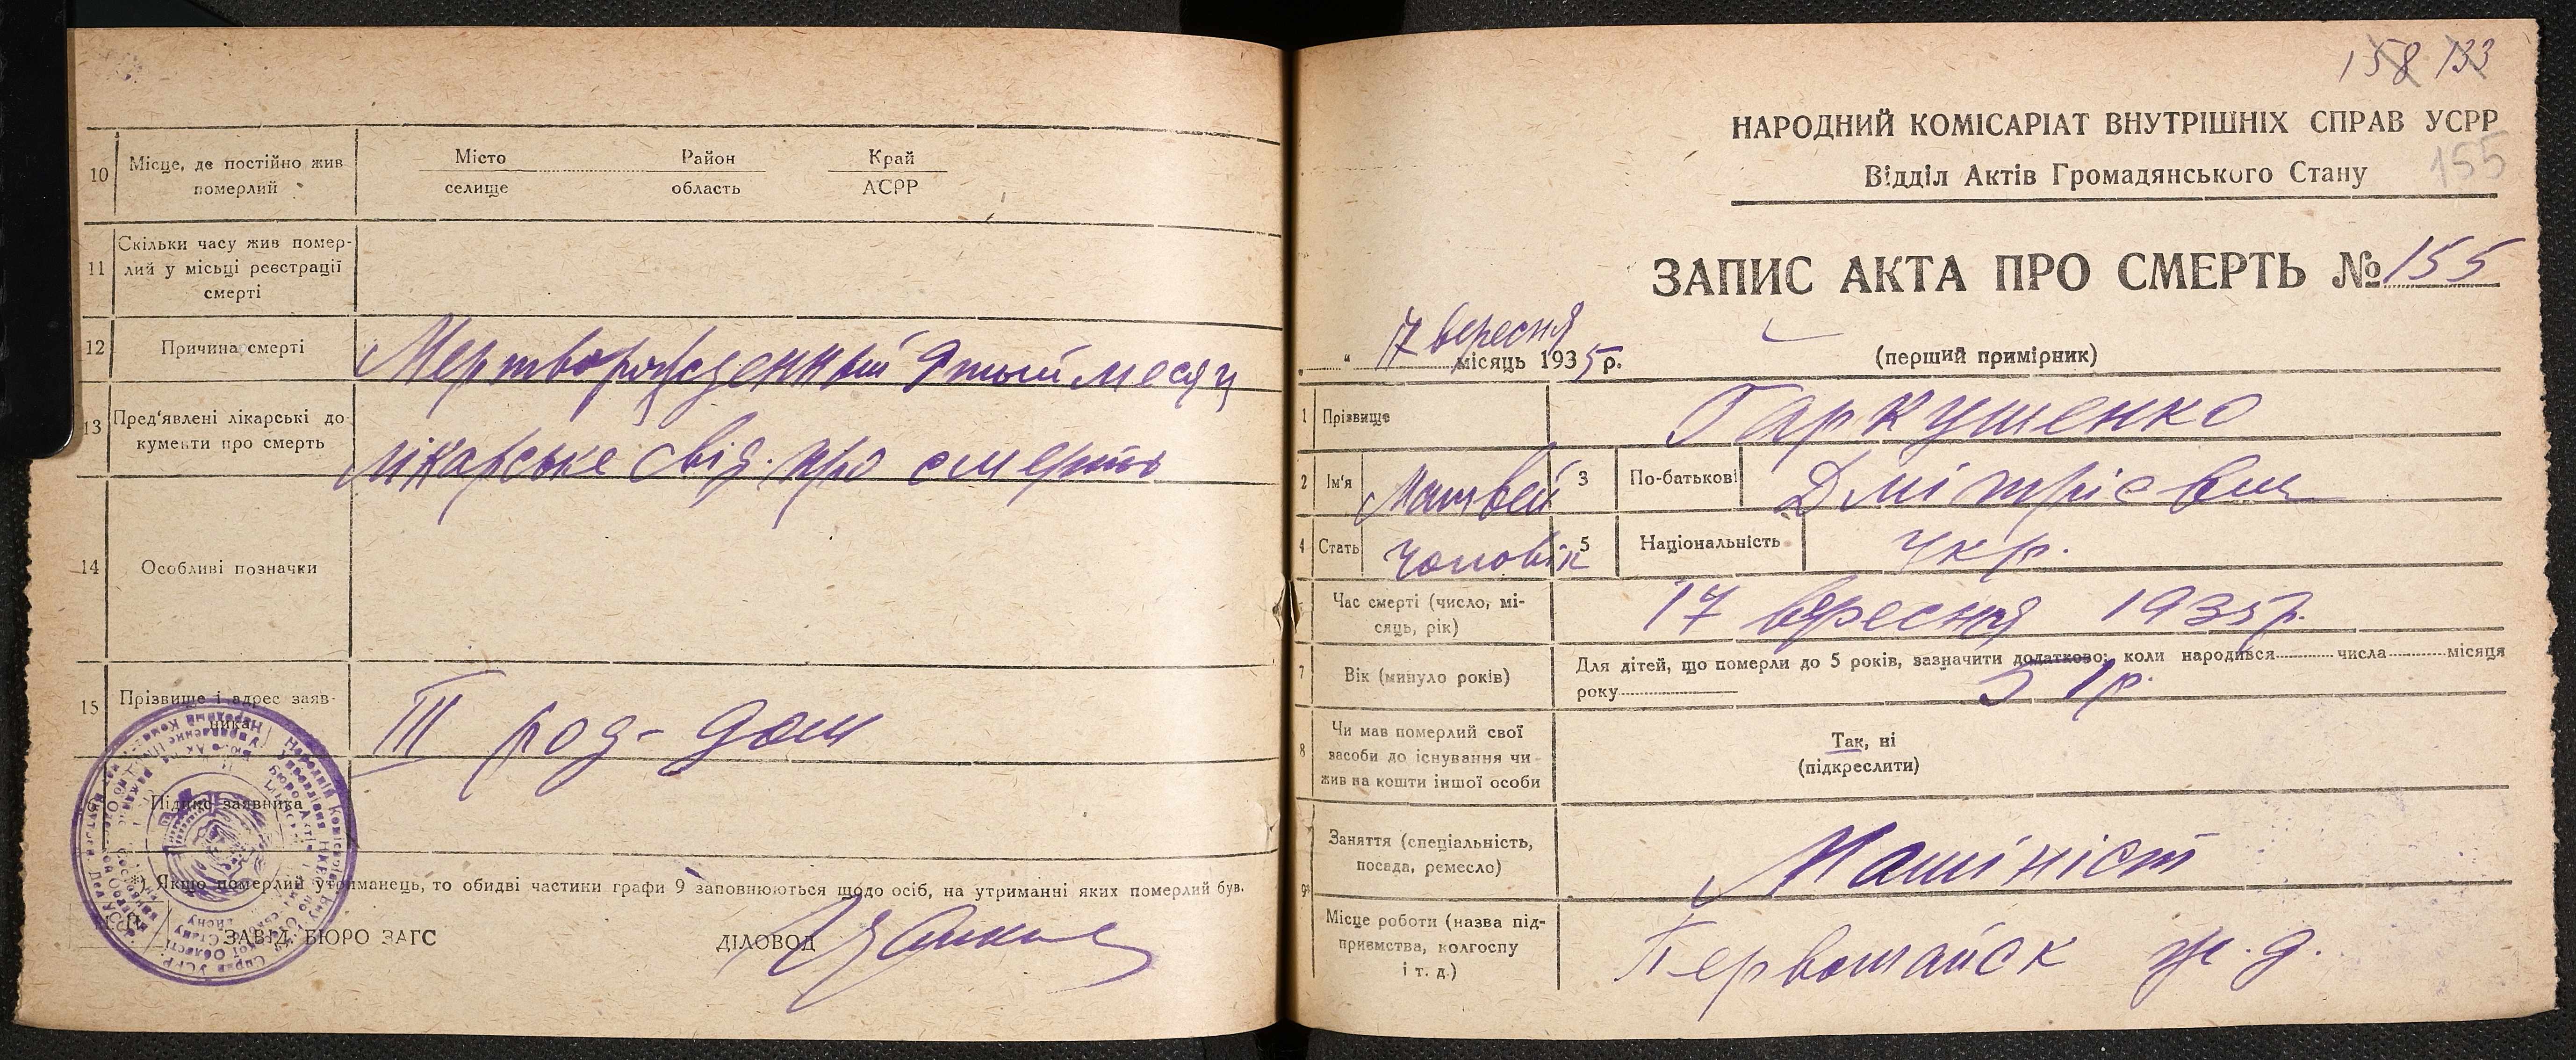 10 Місце, де постійно жив
померлий
Місто Район Край
селище область АСРР
11 Скільки часу жив помер-
лий у місці реєстрації
смерті
12 Причина смерті Мертворожденный 9тый месяц
13 Пред'явлені лікарські до-
кументи про смерть лікарське свід. про смерть
14 Особливі позначки
15 Прізвище і адрес заяв-
ника III род-дом
Підпис заявника
*) Якщо померлий утриманець, то обидві частини графи 9 заповнюються щодо осіб, на утриманні яких померлий був.
ЗАВІД. БЮРО ЗАГС ДІЛОВОД
158 133
НАРОДНИЙ КОМІСАРІАТ ВНУТРІШНІХ СПРАВ УСРР
155
Відділ Актів Громадянського Стану
ЗАПИС АКТА ПРО СМЕРТЬ № 155
„ 17 вересня “ місяць 1935 р. (перший примірник)
1 Прізвище Гаркушенко
2 Ім'я Матвей 3 По-батькові Дмітрієвич
4 Стать чоловік 5 Національність укр.
Час смерті (число, мі-
сяць, рік) 17 вересня 1935 р.
7 Вік (минуло років) Для дітей, що померли до 5 років, зазначити додатково: коли народився числа місяця
року
8 Чи мав померлий свої
засоби до існування чи
жив на кошти іншої особи
Так, ні
(підкреслити)
9 Заняття (спеціальність,
посада, ремесло) Машініст
Місце роботи (назва під-
приємства, колгоспу
і т. д.) Первомайск ж.д.